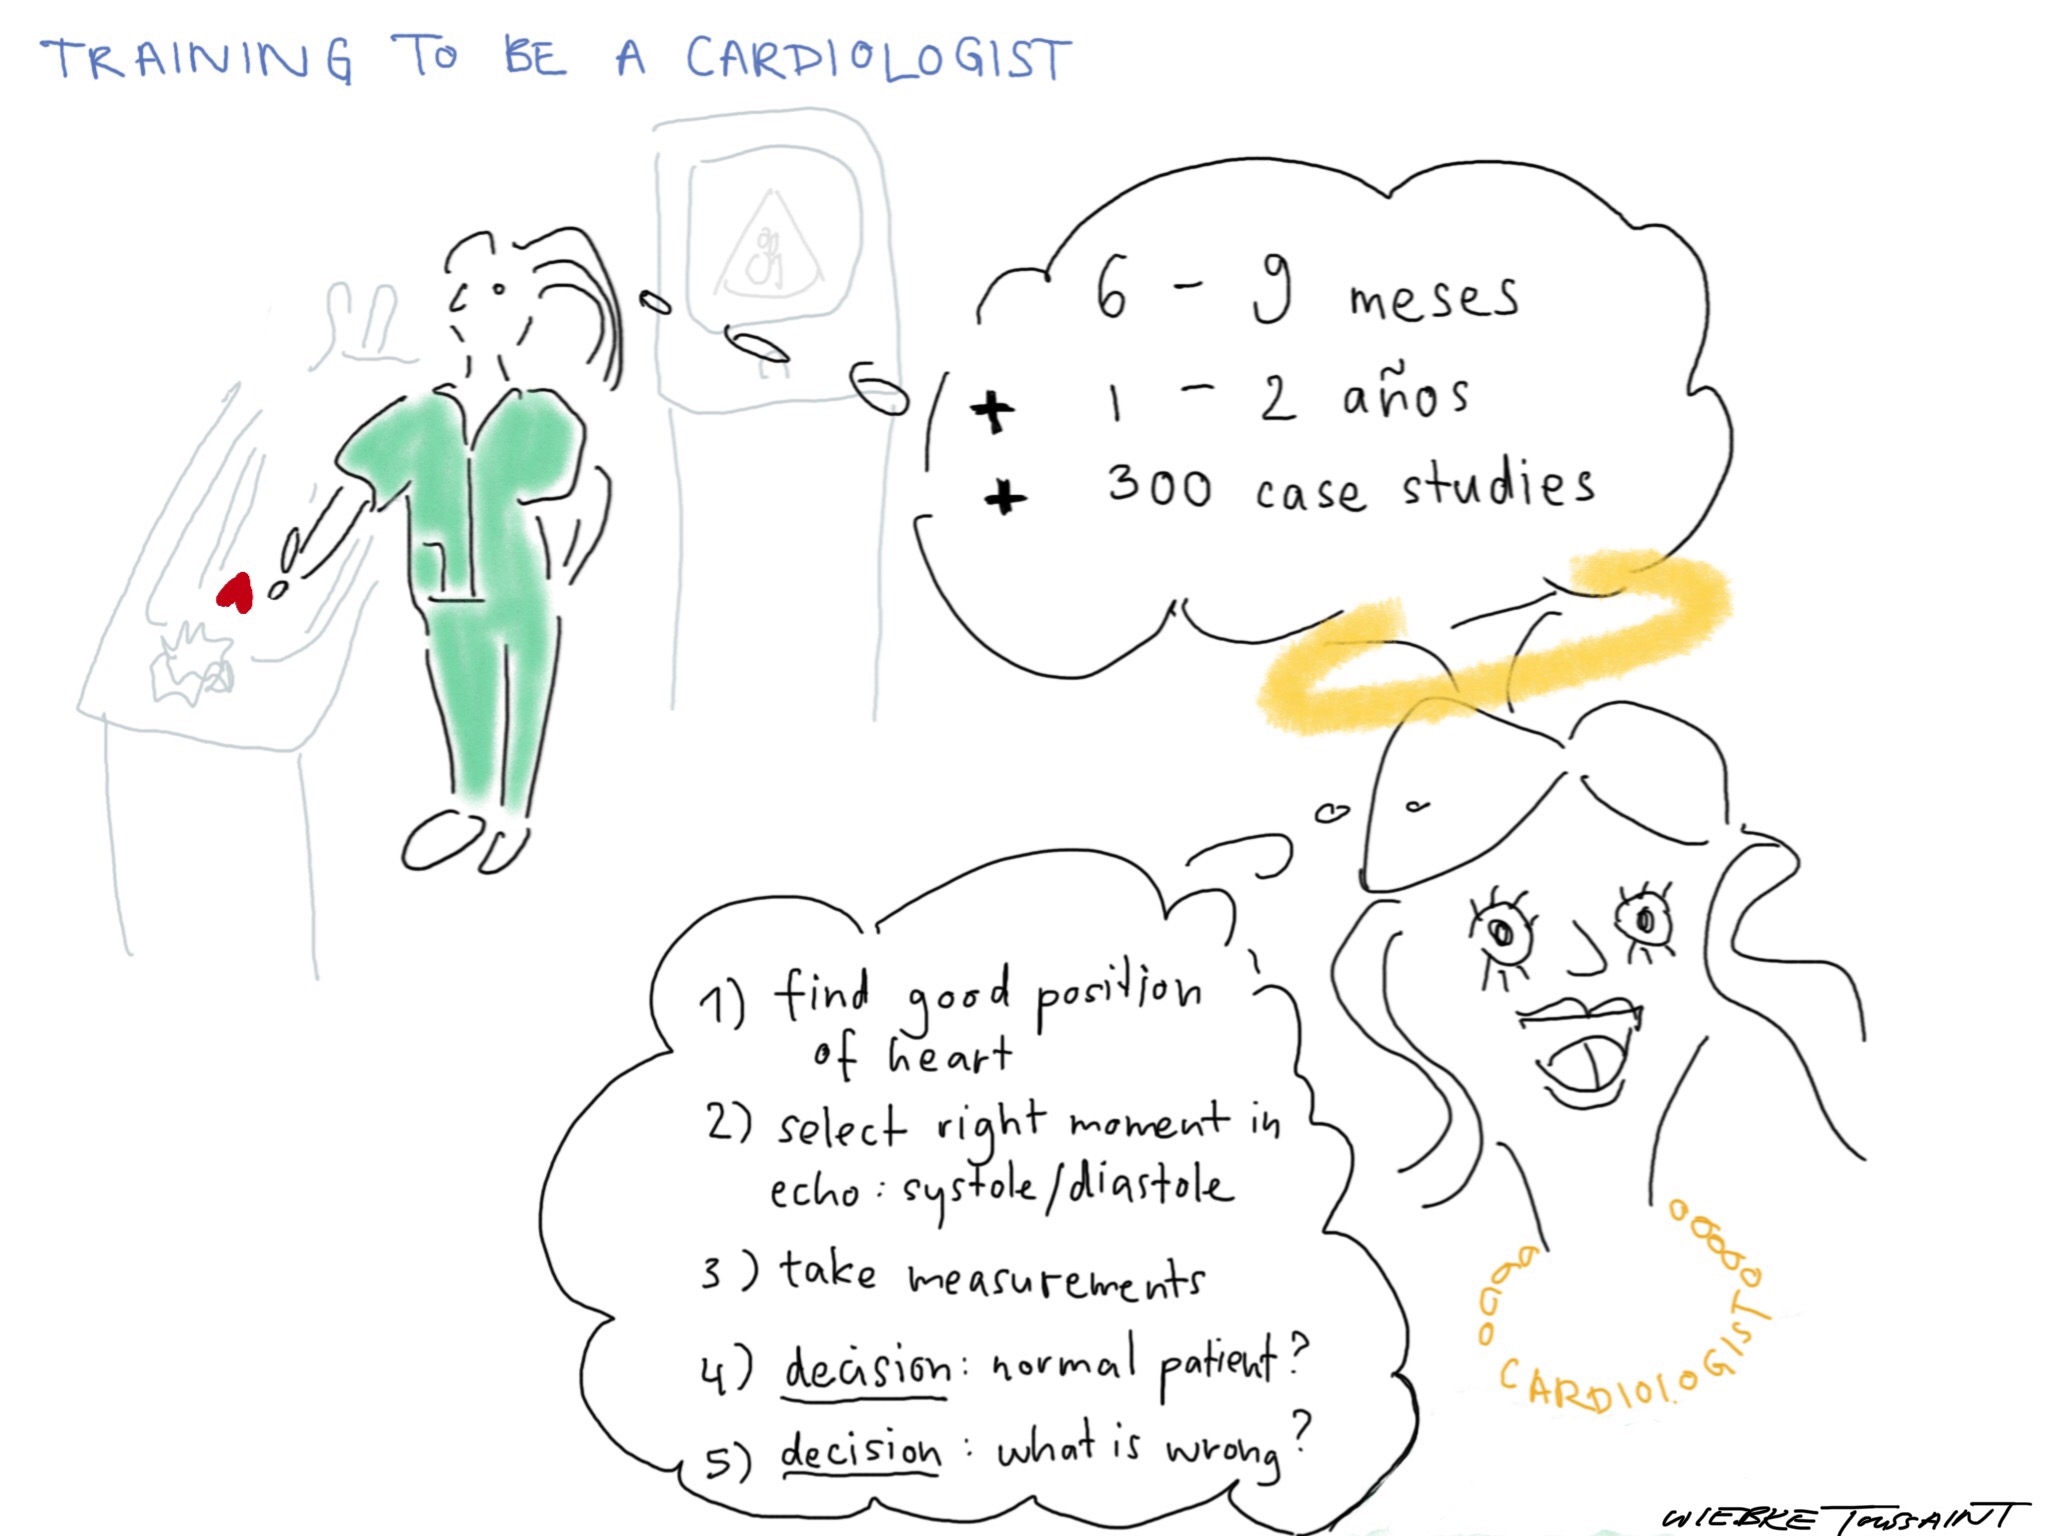 TRAINING TO BE A CARDIOLOGIST
6 - 9 meses
+ 1 - 2 años
+ 300 case studies
1) find good position
of heart
2) select right moment in
echo: systole/diastole
3) take measurements
4) decision: normal patient?
5) decision: what is wrong?
CARDIOLOGIST
WIEBKE TOUSSAINT